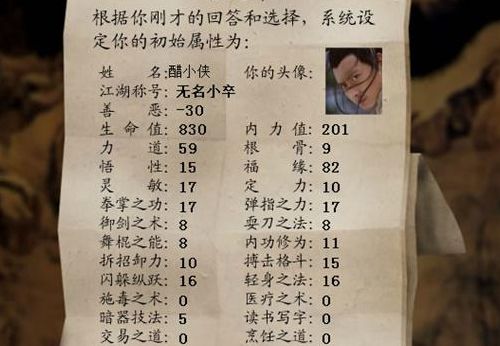 根据你刚才的回答和选择，系统设
定你的初始属性为：
姓 名：醋小侠 你的头像：
江湖称号：无名小卒
善 恶：-30
生 命 值：830 内 力 值：201
力 道：59 根 骨：9
悟 性：15 福 缘：82
灵 敏：17 定 力：10
拳掌之功：17 弹指之力：17
御剑之术：8 耍刀之法：8
舞棍之能：8 内功修为：11
拆招卸力：10 搏击格斗：15
闪躲纵跃：16 轻身之法：16
施毒之术：0 医疗之术：0
暗器技法：5 读书写字：0
交易之道：0 烹饪之道：0